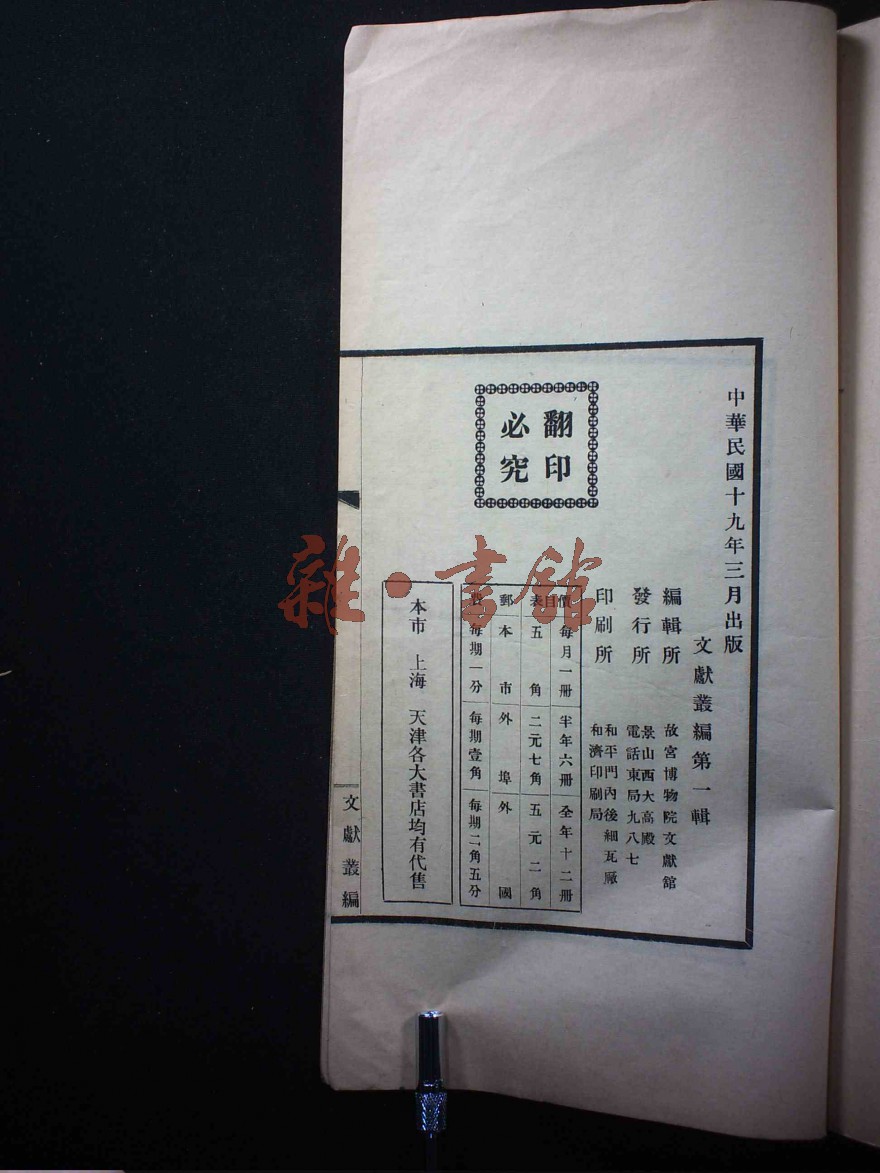 中華民國十九年三月出版
文獻叢編第一輯
編輯所　故宮博物院文獻館
發行所　景山西大高殿
電話東局九八七
印刷所　和平門內後細瓦厰
和濟印刷局
翻印
必究
價目表
每月一册　半年六册　全年十二册
五角　二元七角　五元二角
郵費
本市　外埠　外國
每期一分　每期壹角　每期二角五分
本市　上海　天津各大書店均有代售
文獻叢編
雜·書館